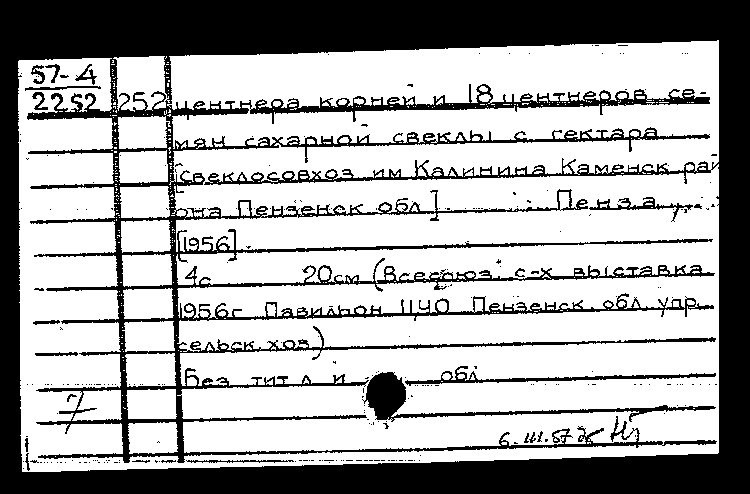 57-4
2252 252 центнера корней и 18 центнеров се-
мян сахарной свеклы с гектара
[Свеклосовхоз им Калинина Каменск рай
она Пензенск обл]. Пенза,
[1956].
4с 20см (Всесоюз. с-х выставка
1956г Павильон ЦЧО Пензенск. обл. упр.
сельск. хоз)
Без тит л и обл
7
6.III.57